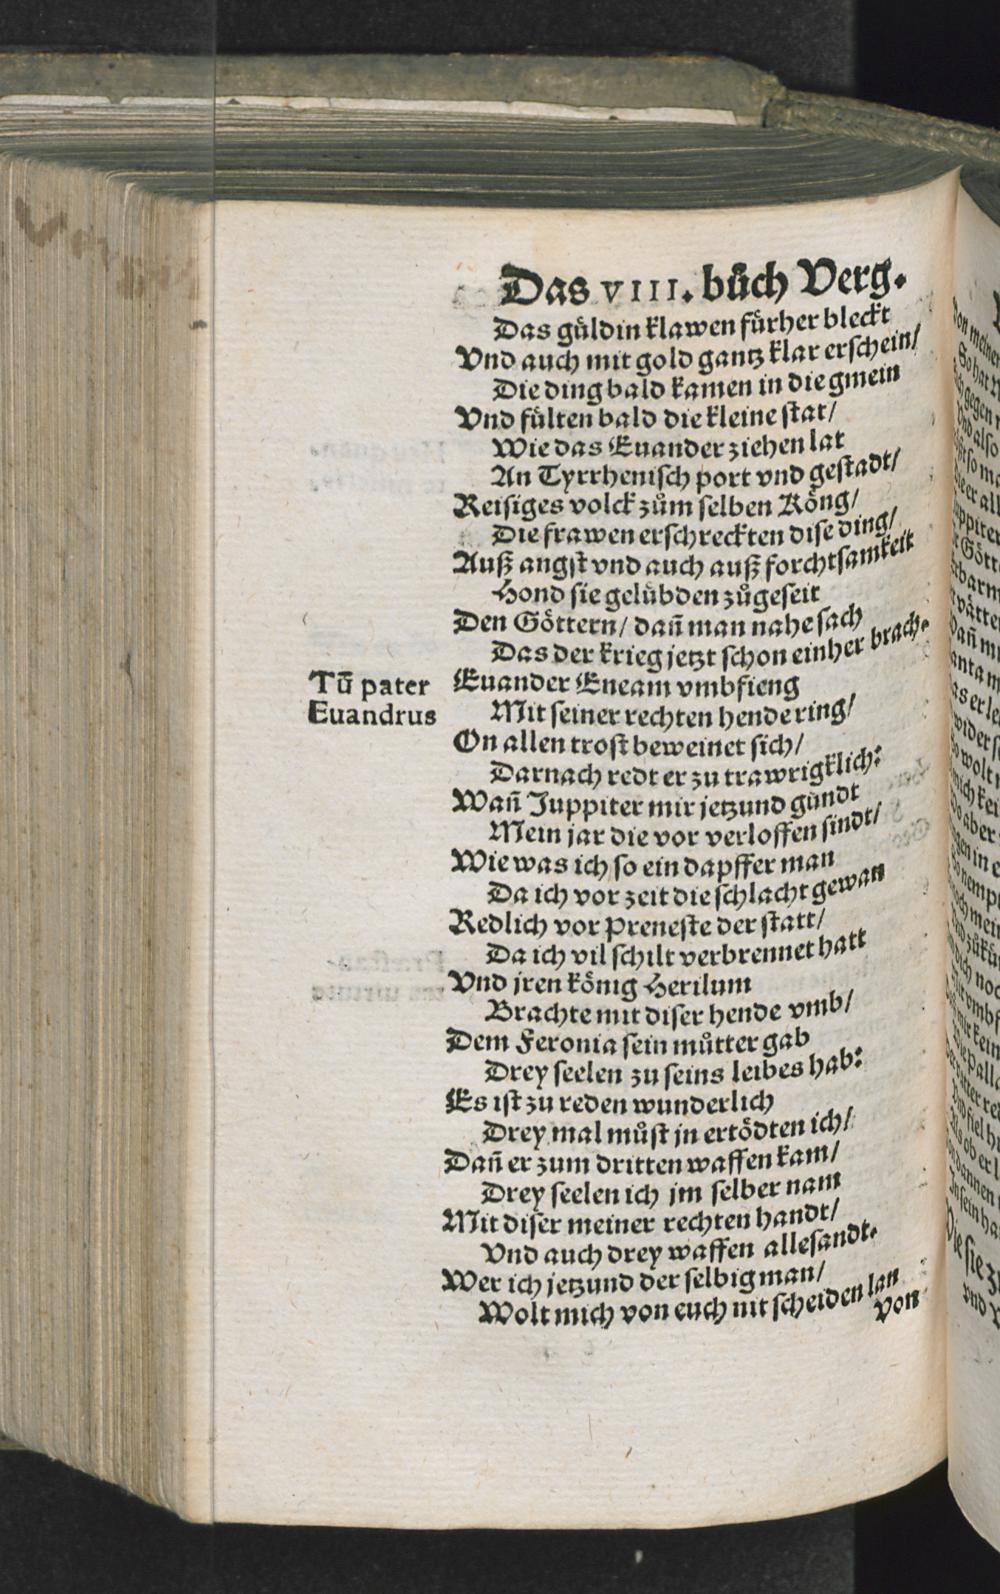 Das VIII. bůch Verg.
Das güldin klawen fürher bleckt
Vnd auch mit gold gantz klar erschein/
Die ding bald kamen in die gmein
Vnd fülten bald die kleine stat/
Wie das Euander ziehen lat
An Tyrrhenisch port vnd gestadt/
Reisiges volck zům selben Köng/
Die frawen erschreckten dise ding/
Auß angst vnd auch auß forchtsamkeit
Hond sie gelübden zůgeseit
Den Göttern/ dañ man nahe sach
Das der krieg jetzt schon einher brach.
Tū pater
Euandrus
Euander Eneam vmbfieng
Mit seiner rechten hende ring/
On allen trost beweinet sich/
Darnach redt er zu trawrigklich:
Wañ Juppiter mir jetzund gündt
Mein jar die vor verloffen sindt/
Wie was ich so ein dapffer man
Da ich vor zeit die schlacht gewan
Redlich vor Preneste der statt/
Da ich vil schilt verbrennet hatt
Vnd jren könig Herilum
Brachte mit diser hende vmb/
Dem Feronia sein můtter gab
Drey seelen zu seins leibes hab:
Es ist zu reden wunderlich
Drey mal můst jn ertödten ich/
Dañ er zum dritten waffen kam/
Drey seelen ich jm selber nam
Mit diser meiner rechten handt/
Vnd auch drey waffen allesandt.
Wer ich jetzund der selbig man/
Wolt mich von euch nit scheiden lan
von